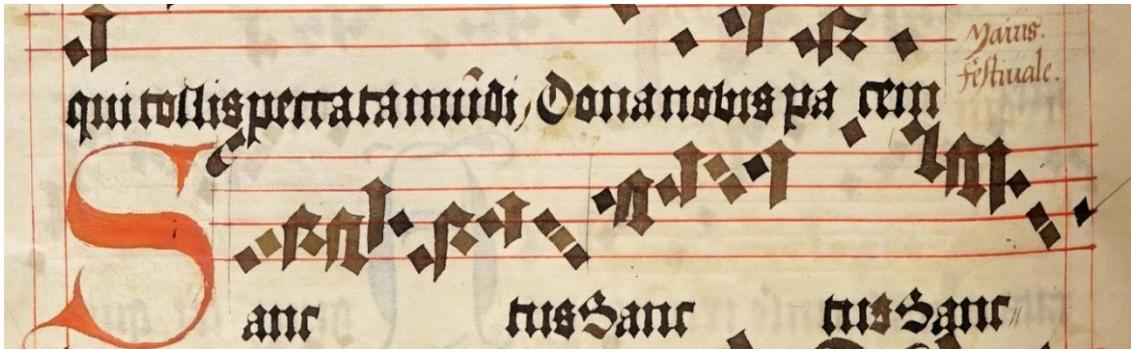 Maius.
festiuale.
qui tollis peccata mūdi, Dona nobis pa cem
Sanc tus Sanc tus Sanc